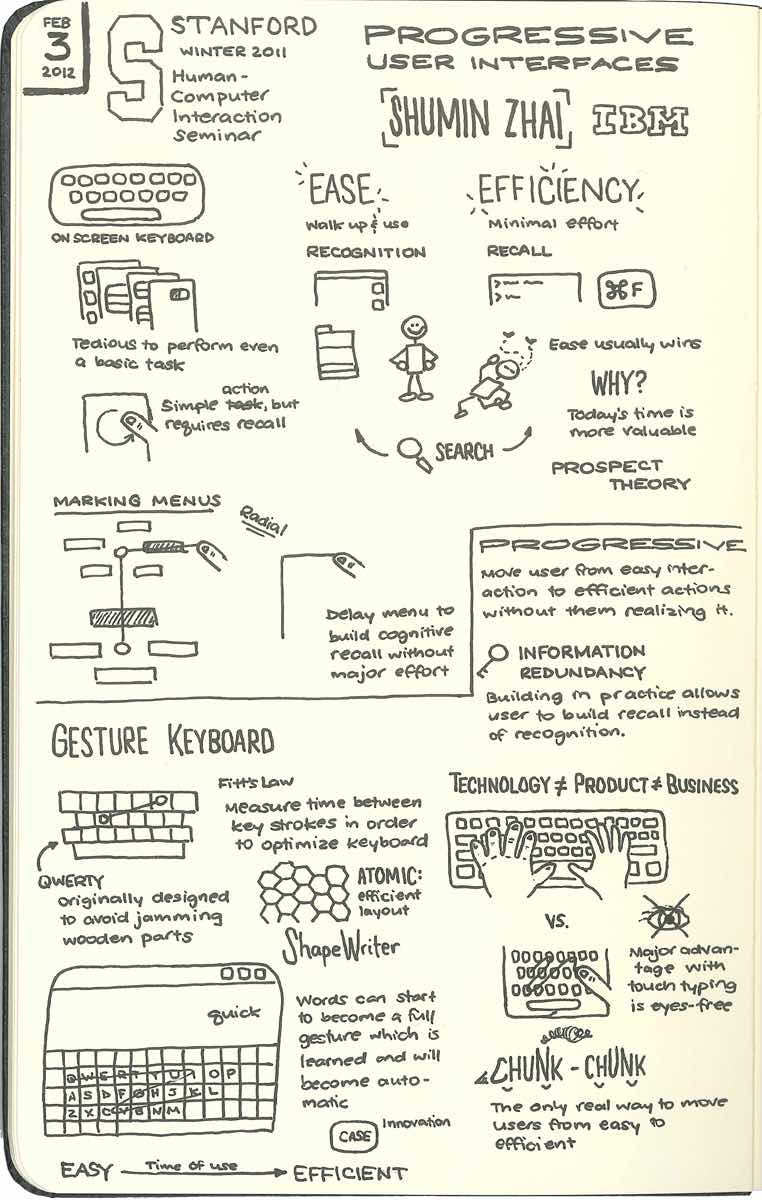 FEB
3
2012
S
STANFORD
WINTER 2011
Human-
Computer
Interaction
Seminar
PROGRESSIVE
USER INTERFACES
[SHUMIN ZHAI]
IBM
ON SCREEN KEYBOARD
Tedious to perform even
a basic task
action
Simple task, but
requires recall
EASE
Walk up & use
RECOGNITION
EFFICIENCY
Minimal effort
RECALL
⌘F
Ease usually wins
WHY?
Today's time is
more valuable
SEARCH
PROSPECT
THEORY
MARKING MENUS
Radial
Delay menu to
build cognitive
recall without
major effort
PROGRESSIVE
Move user from easy inter-
action to efficient actions
without them realizing it.
INFORMATION
REDUNDANCY
Building in practice allows
user to build recall instead
of recognition.
GESTURE KEYBOARD
Fitt's Law
Measure time between
key strokes in order
to optimize keyboard
QWERTY
originally designed
to avoid jamming
wooden parts
ATOMIC:
efficient
layout
ShapeWriter
quick
Q W E R T Y U I O P
A S D F G H J K L
Z X C V B N M
Words can start
to become a full
gesture which is
learned and will
become auto-
matic
CASE
Innovation
EASY Time of use EFFICIENT
TECHNOLOGY ≠ PRODUCT ≠ BUSINESS
VS.
Major advan-
tage with
touch typing
is eyes-free
CHUNK - CHUNK
The only real way to move
users from easy to
efficient